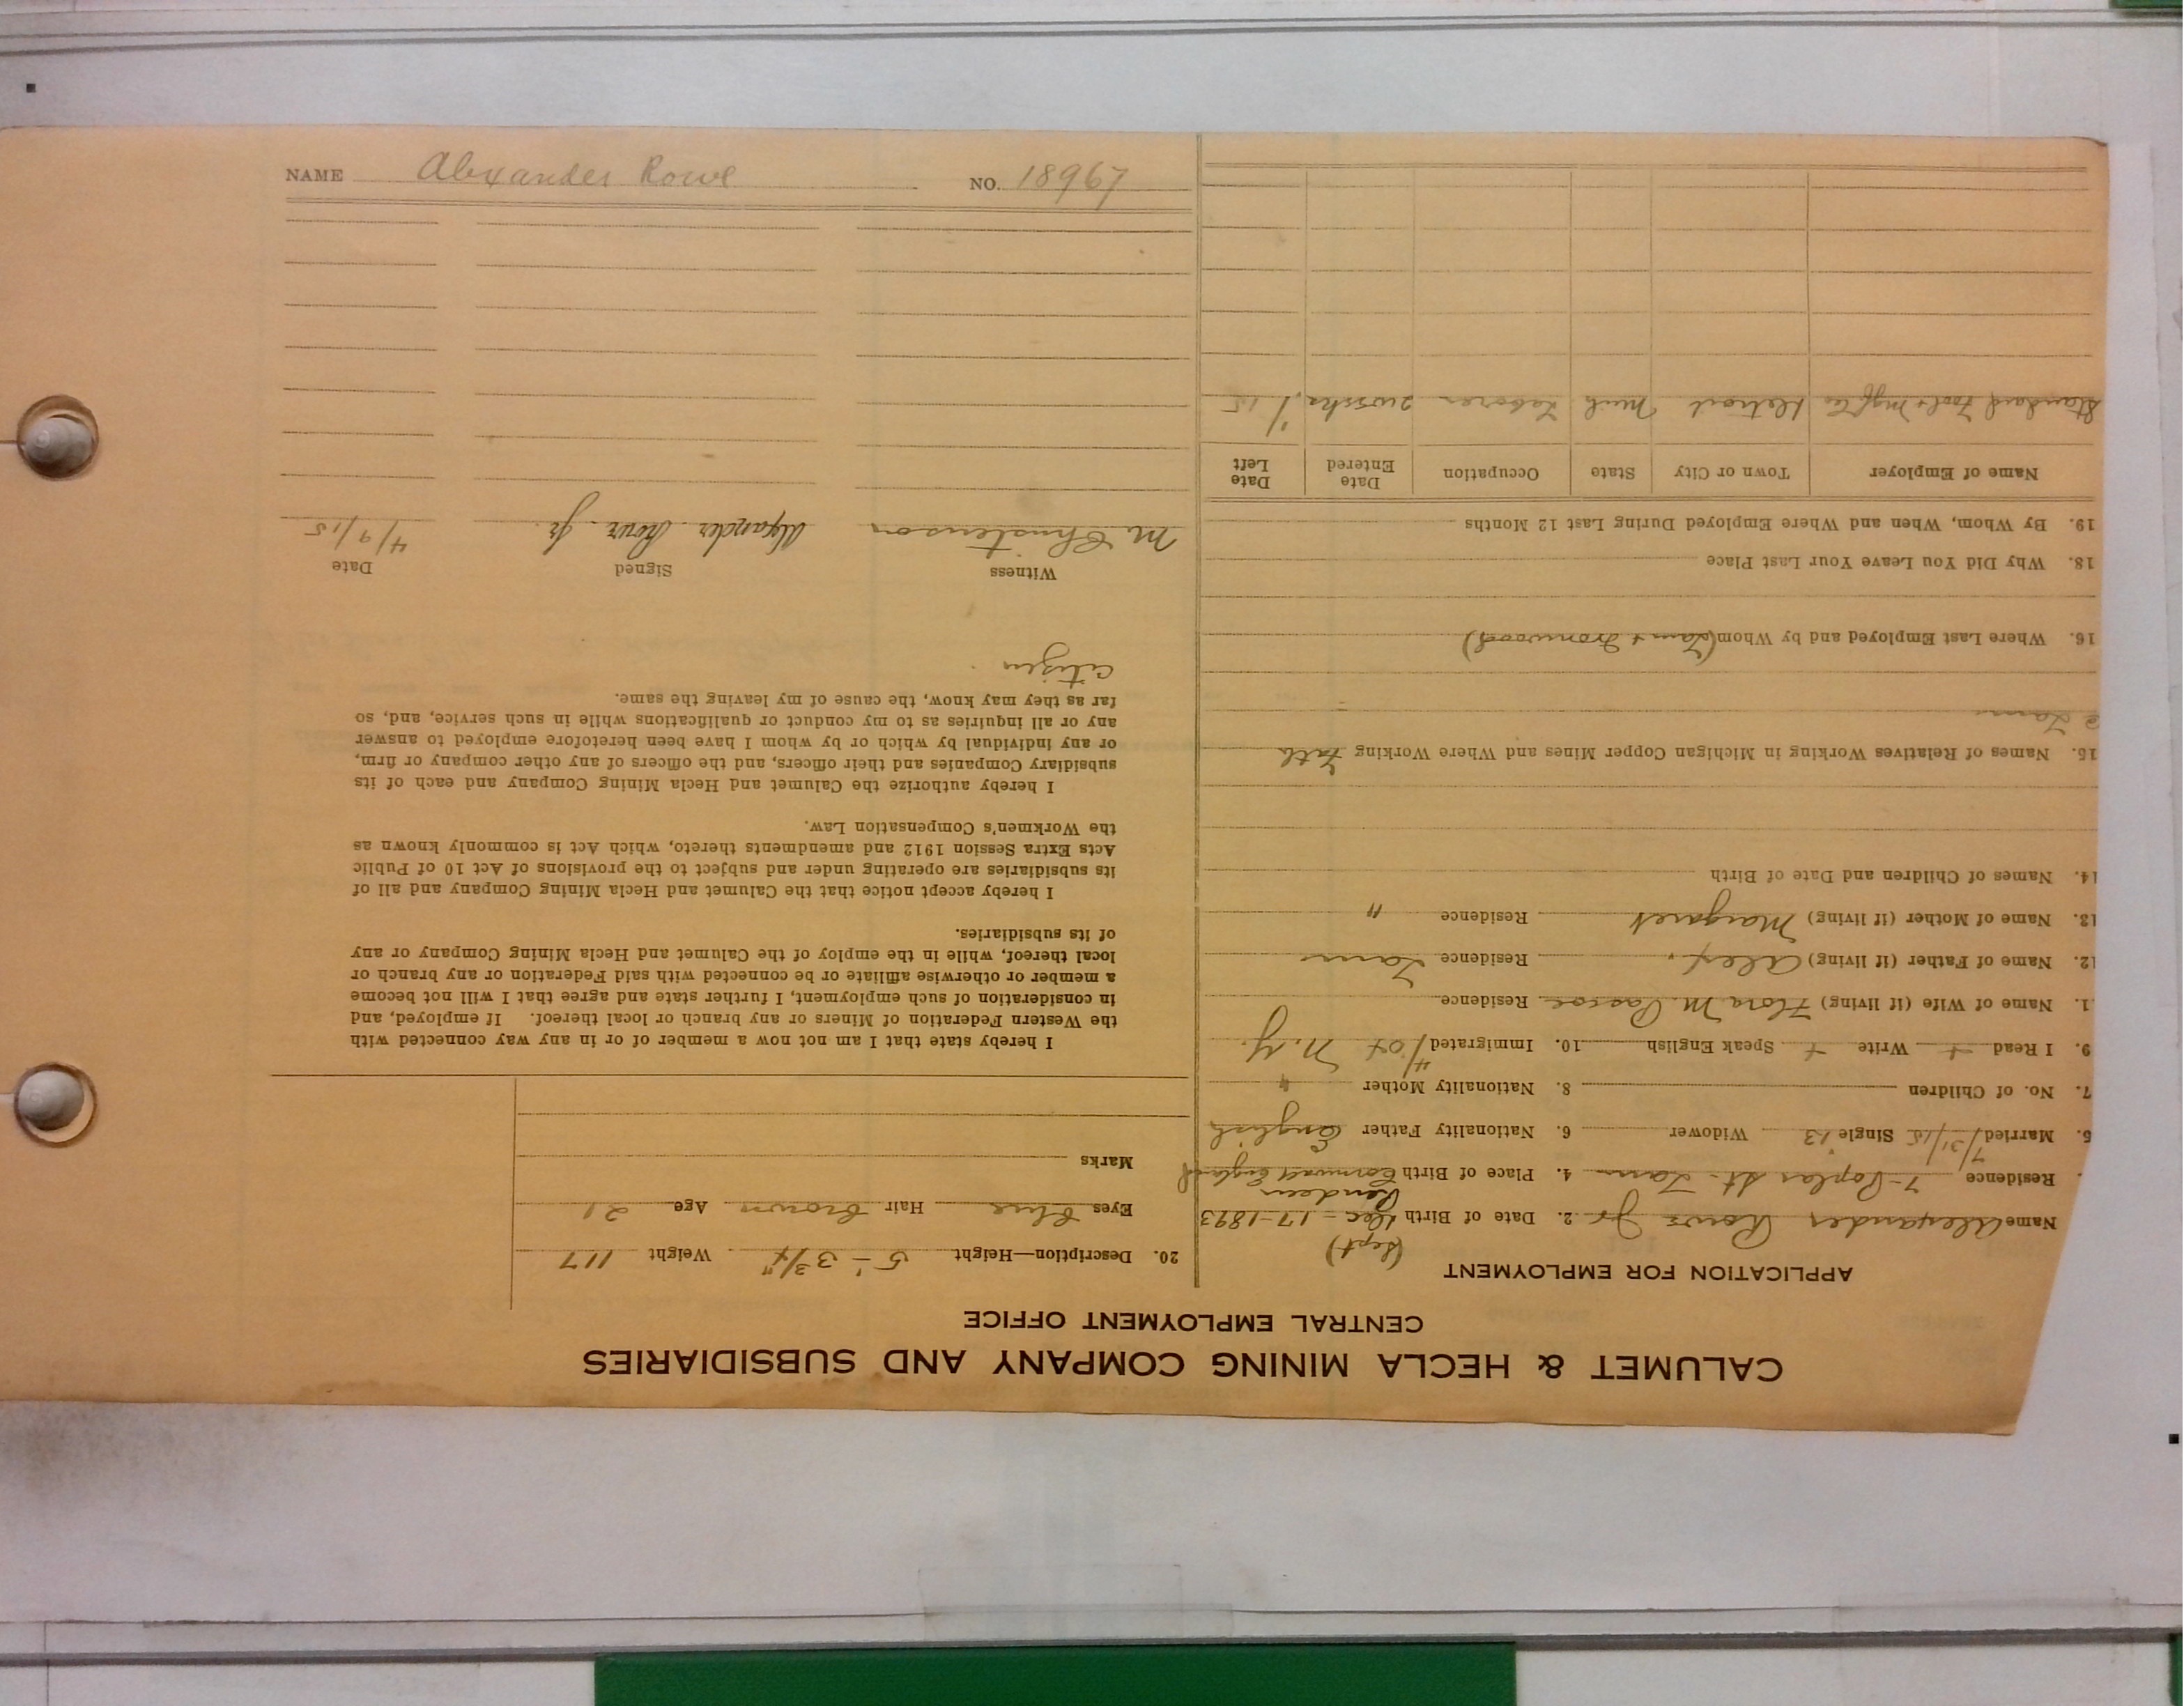 CALUMET & HECLA MINING COMPANY AND SUBSIDIARIES
CENTRAL EMPLOYMENT OFFICE
APPLICATION FOR EMPLOYMENT
(Sept)
Name Alexander Rowe Jr 2. Date of Birth Dec - 17-1893
Residence 7- Poplar St. Laur 4. Place of Birth Cornwall England
Pendeen
5. Married 7/31/15 Single 13 Widower 6. Nationality Father English
7. No. of Children 8. Nationality Mother "
9. I Read + Write + Speak English 10. Immigrated 4/04 N.Y.
1. Name of Wife (if living) Flora M. Pascoe Residence
12. Name of Father (if living) Alex. Residence Laur
13. Name of Mother (if living) Margaret Residence "
14. Names of Children and Date of Birth
15. Names of Relatives Working in Michigan Copper Mines and Where Working Fath
Laur
16. Where Last Employed and by Whom (Laur + Ironwood)
18. Why Did You Leave Your Last Place
19. By Whom, When and Where Employed During Last 12 Months
Name of Employer Town or City State Occupation Date Entered Date Left
Standard Tool + Mfg Co Detroit Mich Laborer 2 weeks 1/1/15
20. Description—Height 5'- 3 3/4" Weight 117
Eyes blue Hair brown Age 21
Marks
I hereby state that I am not now a member of or in any way connected with
the Western Federation of Miners or any branch or local thereof. If employed, and
in consideration of such employment, I further state and agree that I will not become
a member or otherwise affiliate or be connected with said Federation or any branch or
local thereof, while in the employ of the Calumet and Hecla Mining Company or any
of its subsidiaries.
I hereby accept notice that the Calumet and Hecla Mining Company and all of
its subsidiaries are operating under and subject to the provisions of Act 10 of Public
Acts Extra Session 1912 and amendments thereto, which Act is commonly known as
the Workmen's Compensation Law.
I hereby authorize the Calumet and Hecla Mining Company and each of its
subsidiary Companies and their officers, and the officers of any other company or firm,
or any individual by which or by whom I have been heretofore employed to answer
any or all inquiries as to my conduct or qualifications while in such service, and, so
far as they may know, the cause of my leaving the same.
citizen
Witness Signed Date
M Christenson Alexander Rowe Jr. 4/9/15
NAME Alexander Rowe NO. 18967